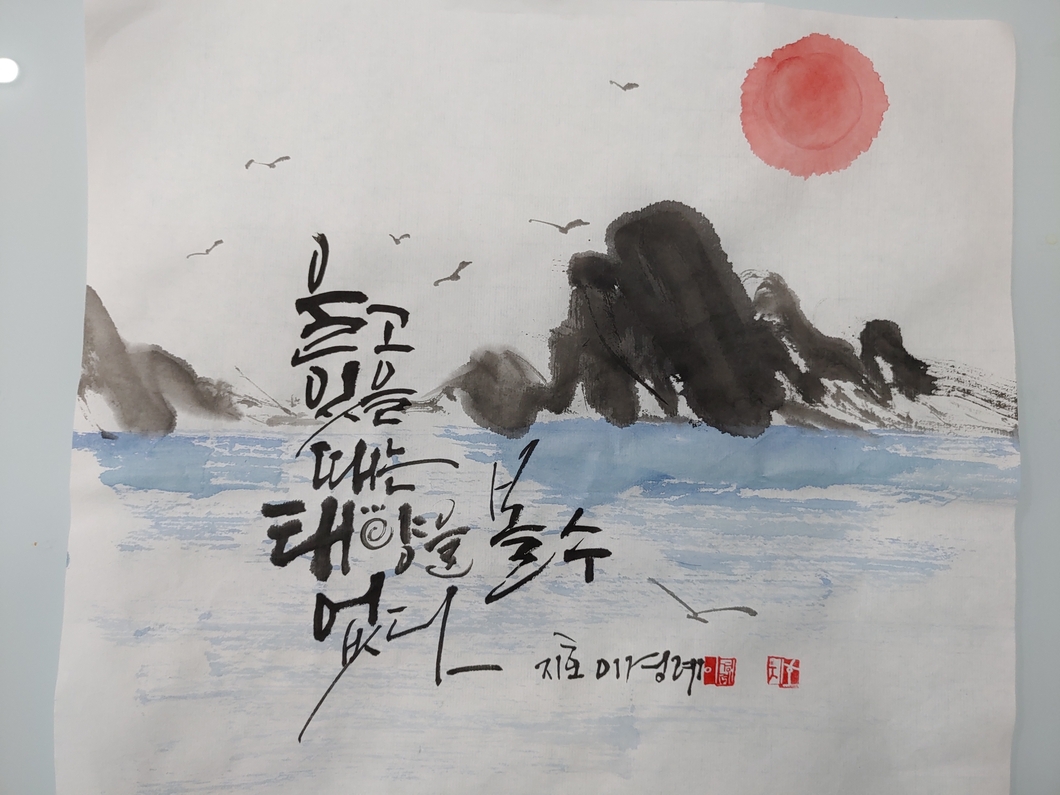 울고
있을
때는
태양을 볼 수
없다
지호 이경례